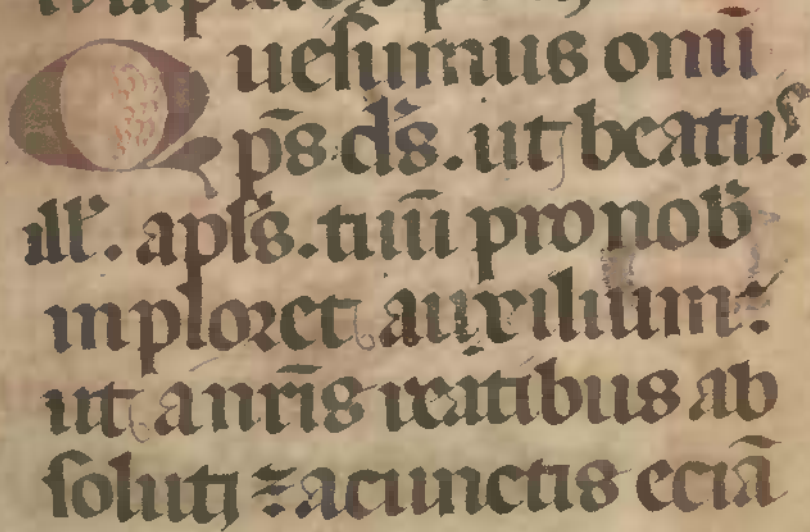 Quesumus omī
pš dš. ut beatuˢ
ill'. aplš. tuū pro nob̄
inploret auxilium:
ut a nrīs reatibus ab
soluti ⁊ a cunctis eciā